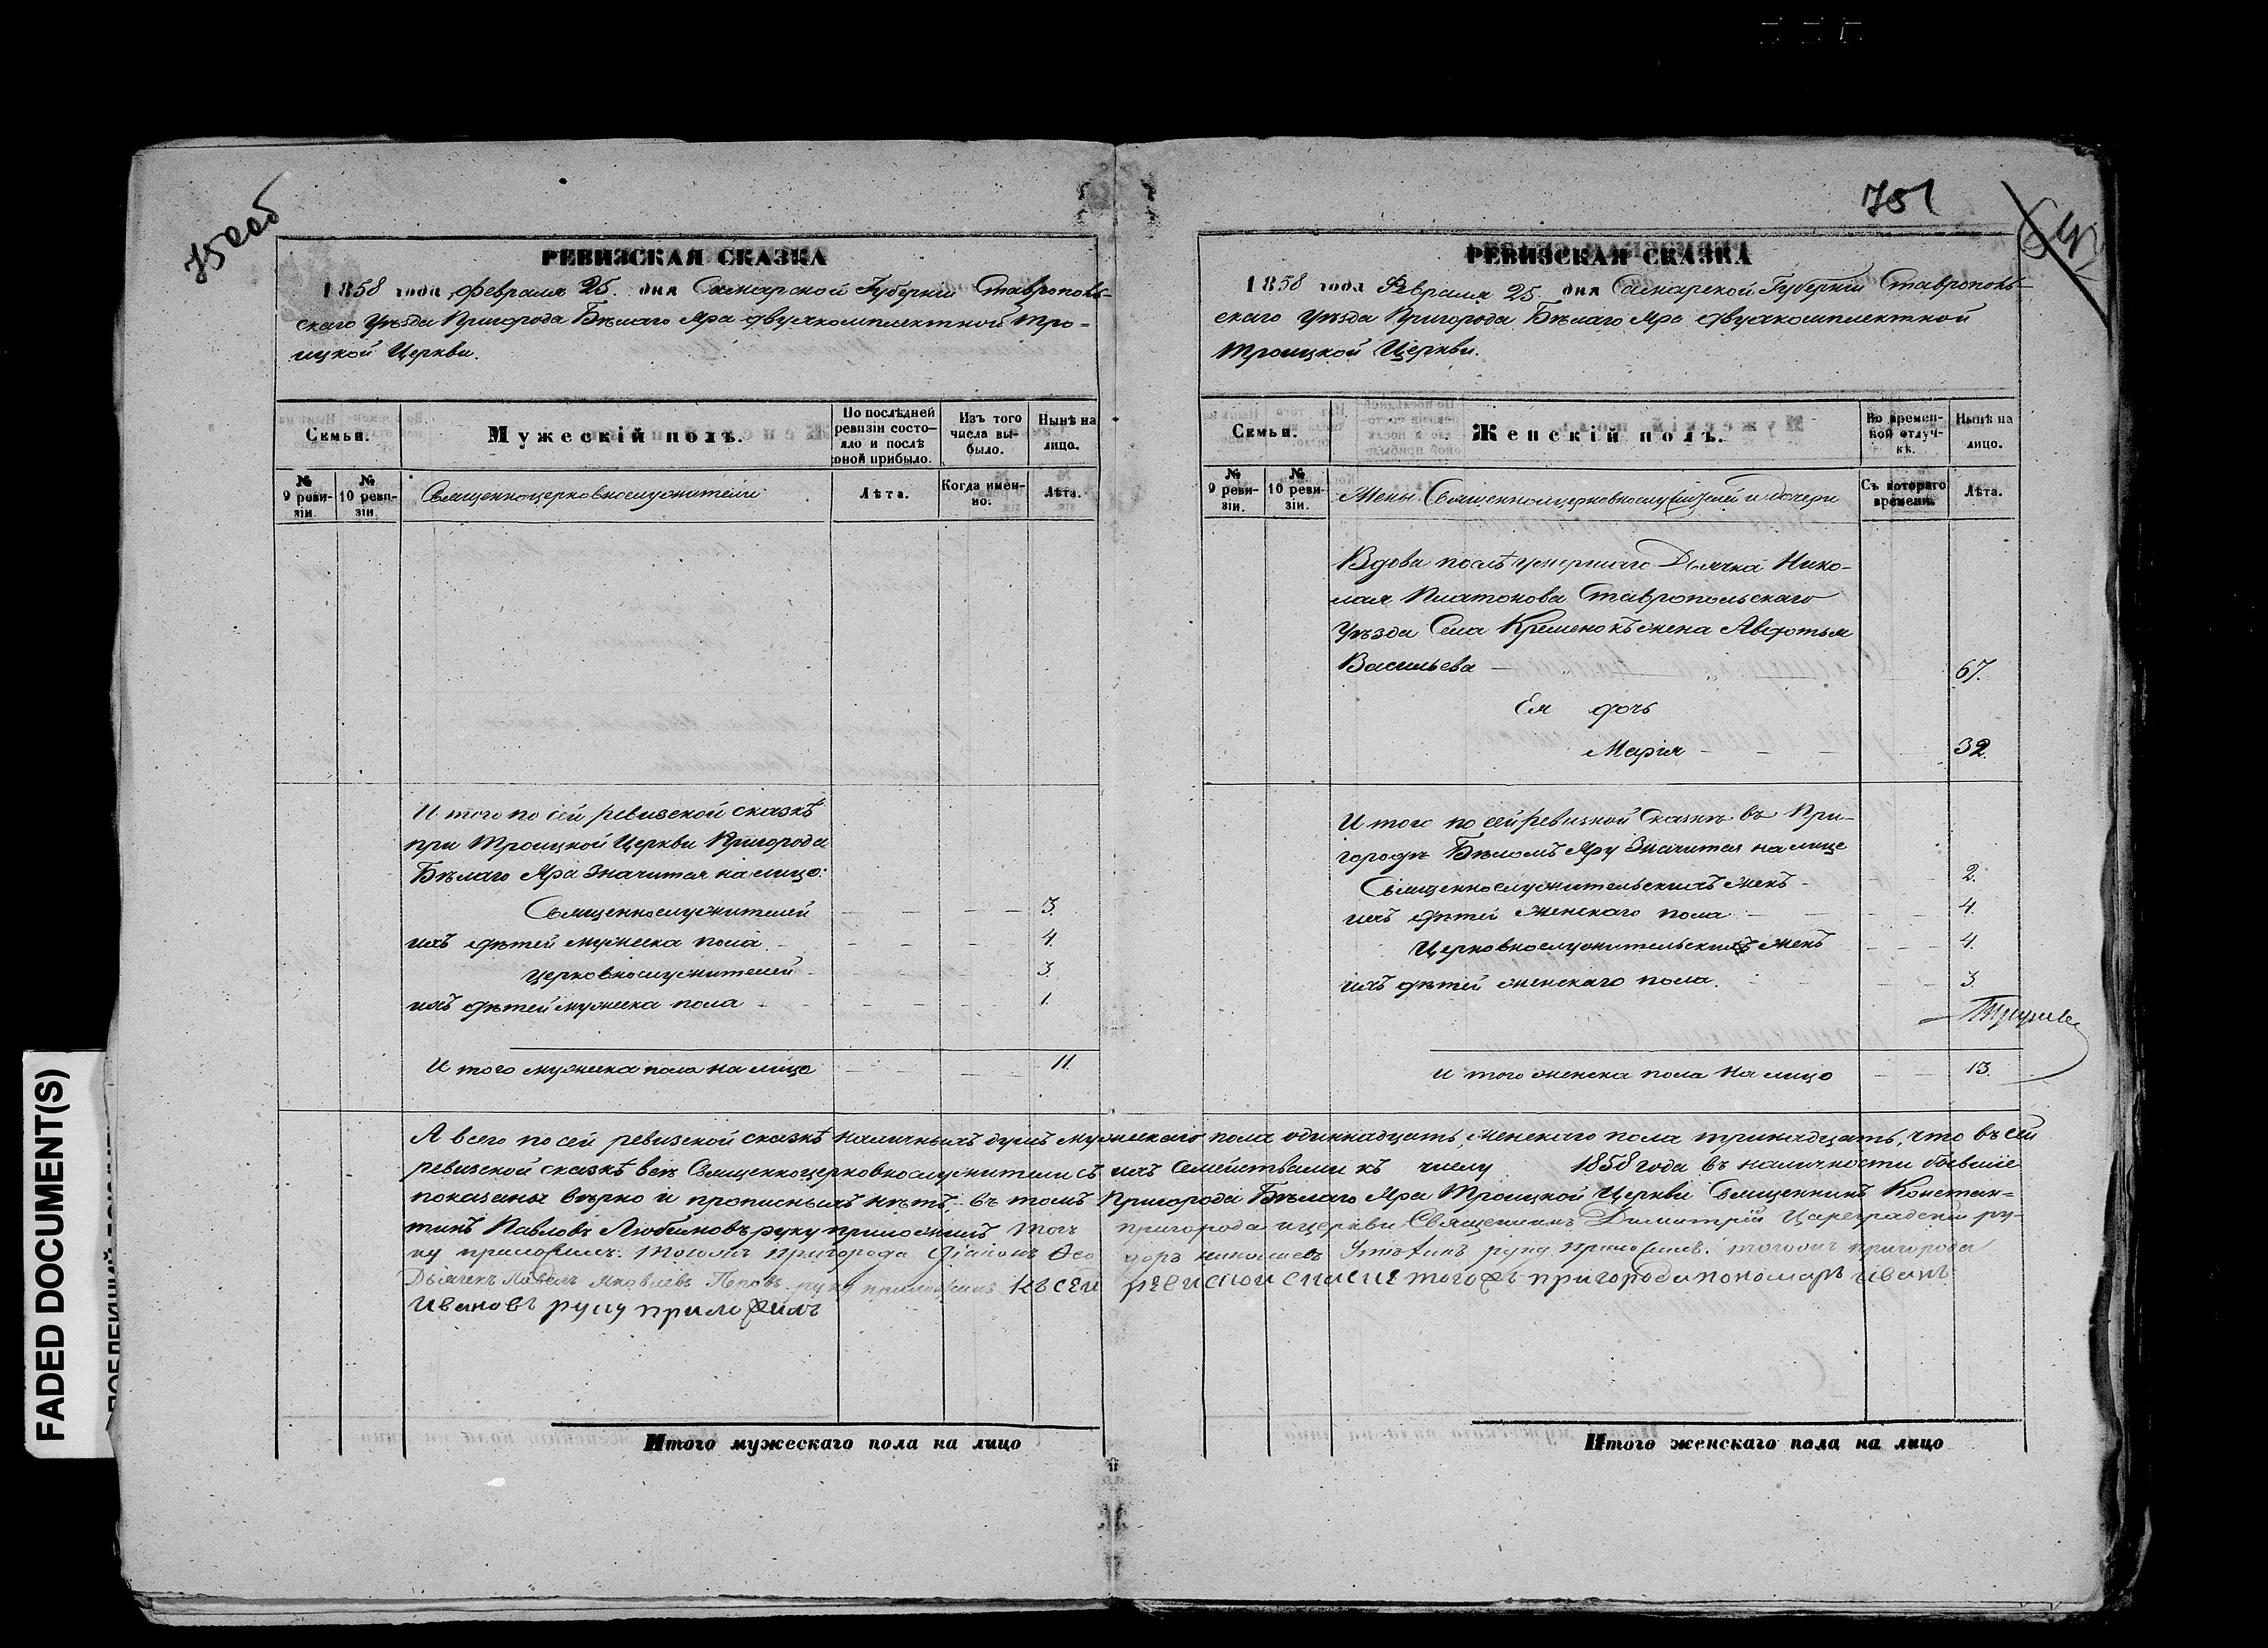 750об
РЕВИЗСКАЯ СКАЗКА
1858 года Февраля 25. дня Самарской Губернии Ставрополь-
скаго Уѣзда Пригорода Бѣлаго Яра двухкомплектной Тро-
ицкой Церкви.
Семьи.
Мужескій полъ.
По послѣдней ревизіи состо-
яло и послѣ
оной прибыло.
Изъ того
числа вы-
было.
Нынѣ на
лицо.
№
9 реви-
зіи.
№
10 реви-
зіи.
Священноцерковнослужители
Лѣта.
Когда имен-
но.
Лѣта.
И того по сей ревизской сказкѣ
при Троицкой Церкви Пригорода
Бѣлаго Яра значится на лицо:
Священнослужителей 3.
ихъ дѣтей мужеска пола 4.
Церковнослужителей 3.
ихъ дѣтей мужеска пола 1.
И того мужеска пола на лицо 11.
751
РЕВИЗСКАЯ СКАЗКА
1858 года Февраля 25. дня Самарской Губернии Ставрополь-
скаго Уѣзда Пригорода Бѣлаго Яра двухкомплектной
Троицкой Церкви.
Семьи.
Женскій полъ.
Во времен-
ной отлуч-
кѣ.
Нынѣ на
лицо.
№
9 реви-
зіи.
№
10 реви-
зіи.
Жены Священноцерковнослужителей и дочери
Съ котораго
времени.
Лѣта.
Вдова послѣ умершаго Дьячка Нико-
лая Платонова Ставропольскаго
Уѣзда Села Кременокъ жена Авдотья
Васильева 67.
Ея дочь
Марія 32.
И того по сей ревизкой Сказкѣ въ При-
городѣ Бѣломъ Яру Значится на лице
Священнослужительскихъ женъ 2.
ихъ дѣтей Женскаго пола 4.
Церковнослужительскихъ женъ 4.
ихъ дѣтей женскаго пола. 3.
И того женска пола На лицо 13.
А всего по сей ревизской сказкѣ наличныхъ душъ мужескаго пола одиннадцать, женскаго пола тринадцать, что въ сей
ревизской сказкѣ всѣ Священноцерковнослужители съ ихъ Семействами къ числу 1858 года въ наличности бывшіе
показаны вѣрно и прописныхъ нѣтъ, въ томъ Пригорода Бѣлаго Яра Троицкой Церкви Священникъ Констан=
тинъ Павловъ Любимовъ руку приложилъ Тогожъ пригорода и церкви Священникъ Димитрій Цареградскій ру-
ку приложилъ. Тогожъ пригорода Діаконъ Ѳео доръ Николаевъ руку приложилъ. тогожъ пригорода
Дьячекъ Павелъ Яковлевъ Поповъ руку приложилъ къ сей ревиской скаске тогожъ пригорода пономарь Иванъ
Ивановъ руку приложилъ
Итого мужескаго пола на лицо
Итого женскаго пола на лицо
FADED DOCUMENT(S)